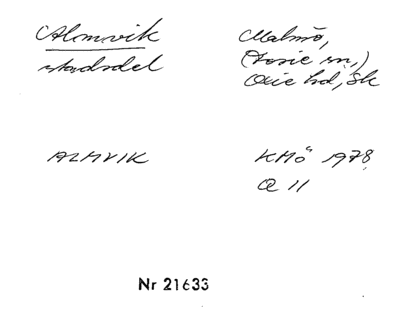 Almvik
stadsdel
Malmö,
(Fosie sn,)
Oxie hd, Sk
ALMVIK
KMÖ 1978
Q 11
Nr 21633